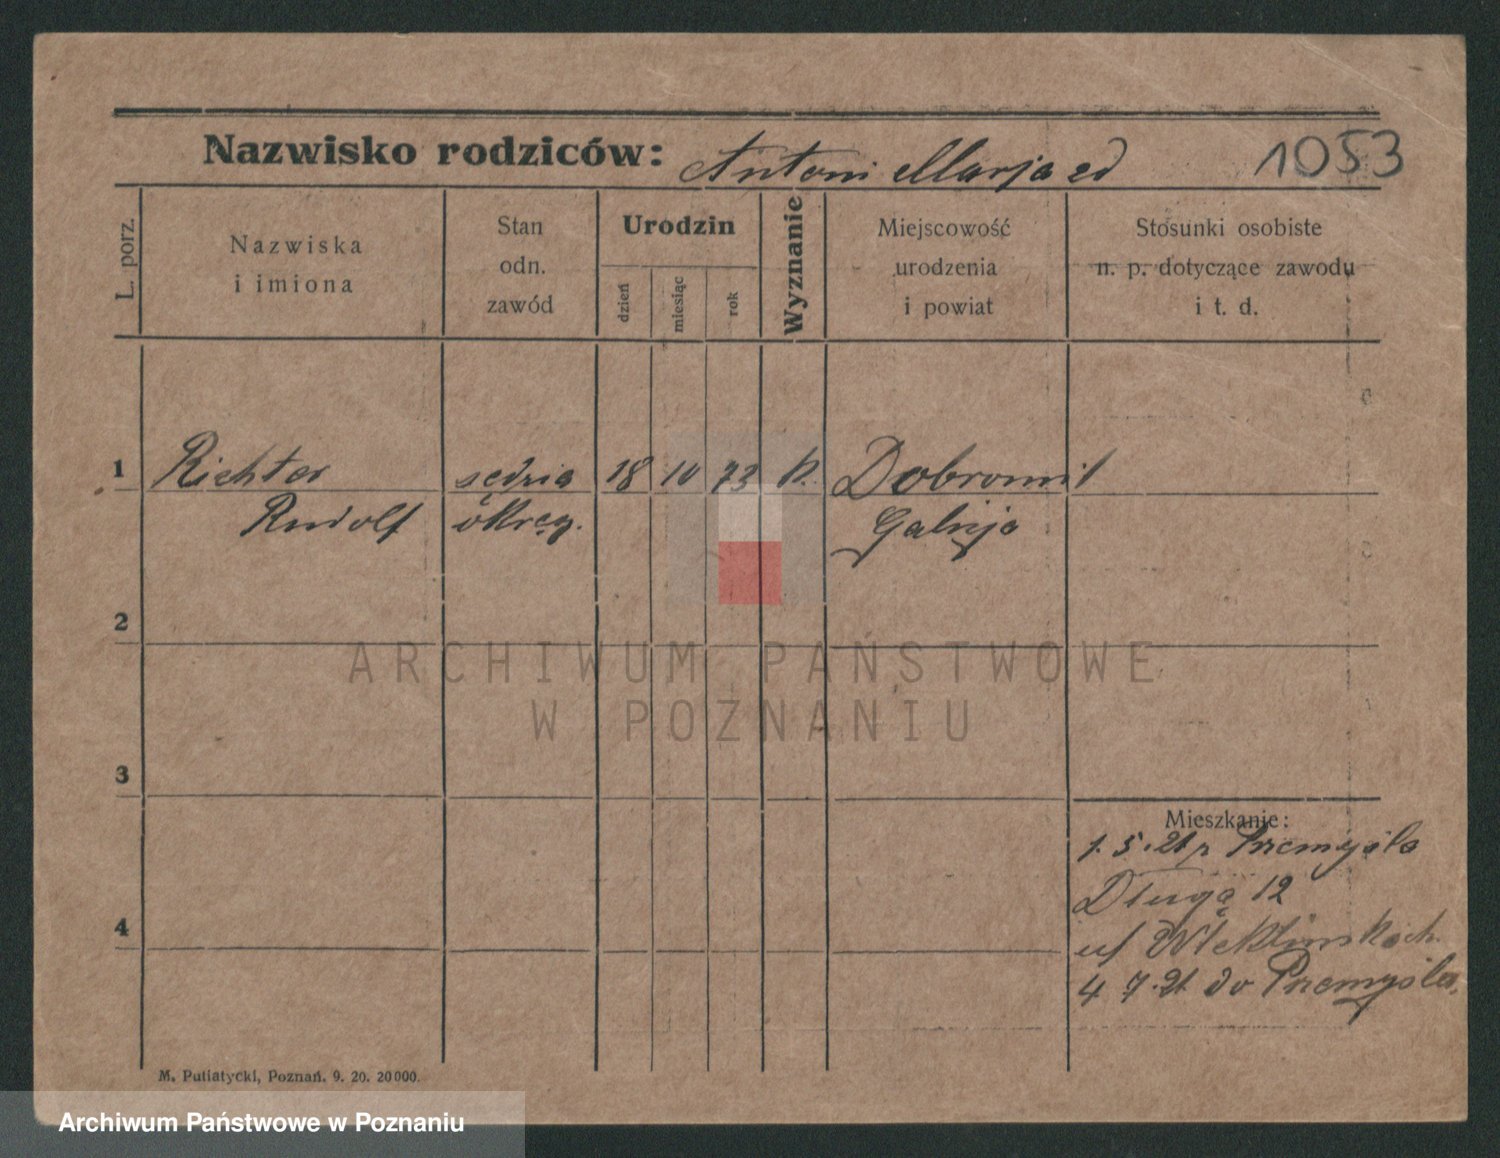 Nazwisko rodziców: Antoni Marja 1053
L. porz.
Nazwiska
i imiona
Stan
odn.
zawód
Urodzin
dzień
miesiąc
rok
Wyznanie
Miejscowość
urodzenia
i powiat
Stosunki osobiste
n. p. dotyczące zawodu
i t. d.
1 Richter sędzia 18 10 73 k. Dobromil
Rudolf okręg. Galicja
2
3
4
Mieszkanie:
1.5.21 z Przemyśla
Długa 12
4 7.21 do Przemyśla.
M. Putiatycki, Poznań. 9. 20. 20000.
ARCHIWUM PAŃSTWOWE
W POZNANIU
Archiwum Państwowe w Poznaniu